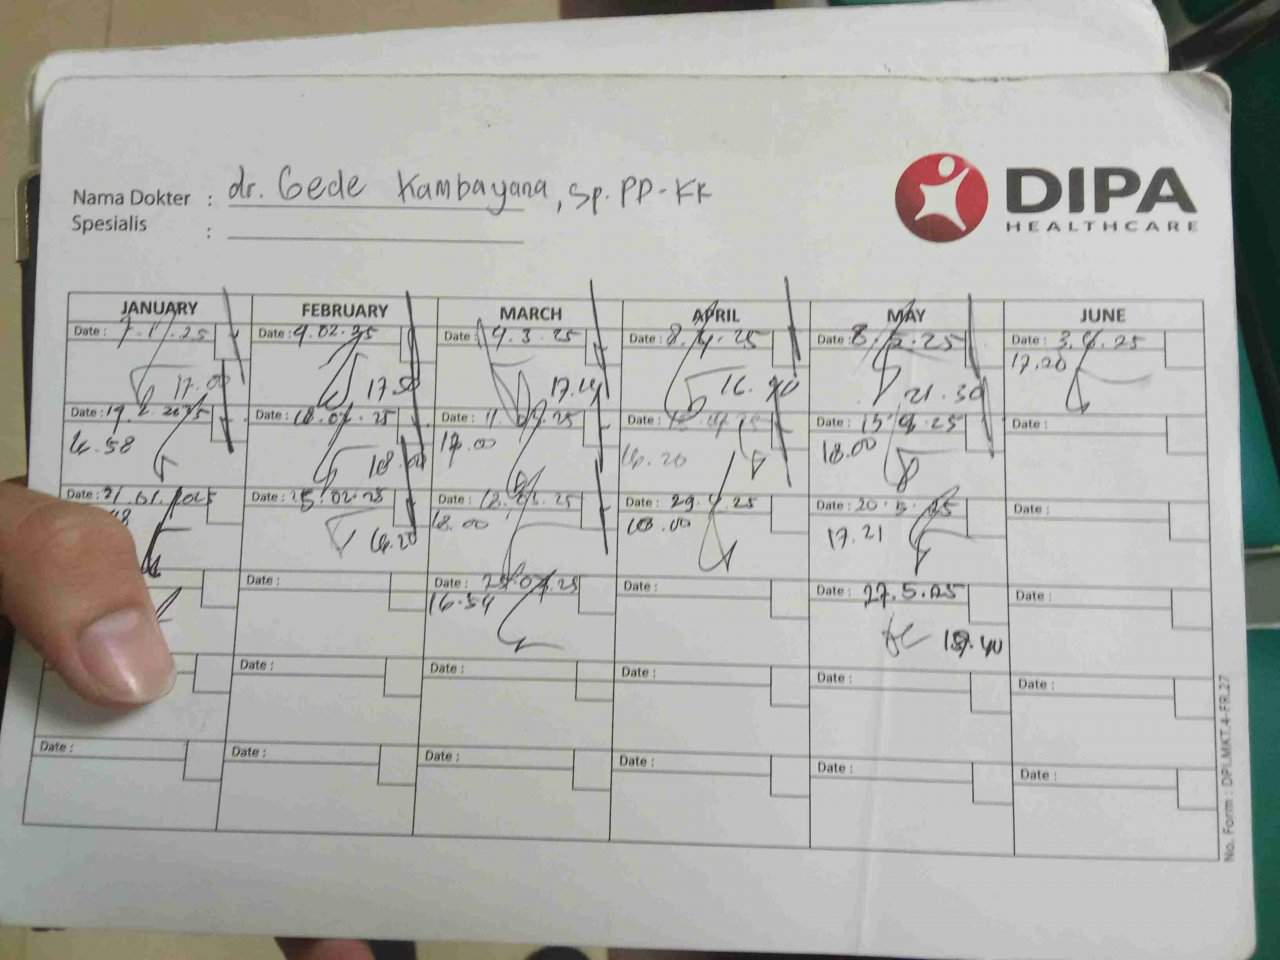 Nama Dokter : dr. Gede Kambayana, Sp. PD-KR
Spesialis :
DIPA
HEALTHCARE
JANUARY FEBRUARY MARCH APRIL MAY JUNE
Date : 7.1.25 Date : 9.02.25 Date : 4.3.25 Date : 8.4.25 Date : 8.5.25 Date : 3.6.25
17.00 17.50 17.14 21.30 17.20
Date : Date : 18.02.25 Date : 11. .25 Date : Date : 15. .25 Date :
16.58 18.00 17.00 16.20 18.00
Date : 21.01.2025 Date : 25.02.25 Date : Date : 29.4.25 Date : 20.5.25 Date :
16.20 18.00 18.00 17.21
Date : Date : 25. .25 Date : Date : 27.5.25 Date :
16.54
Date : Date : Date : Date : Date :
Date : Date : Date : Date : Date : Date :
No. Form : DPI.MKT.4-FR.27